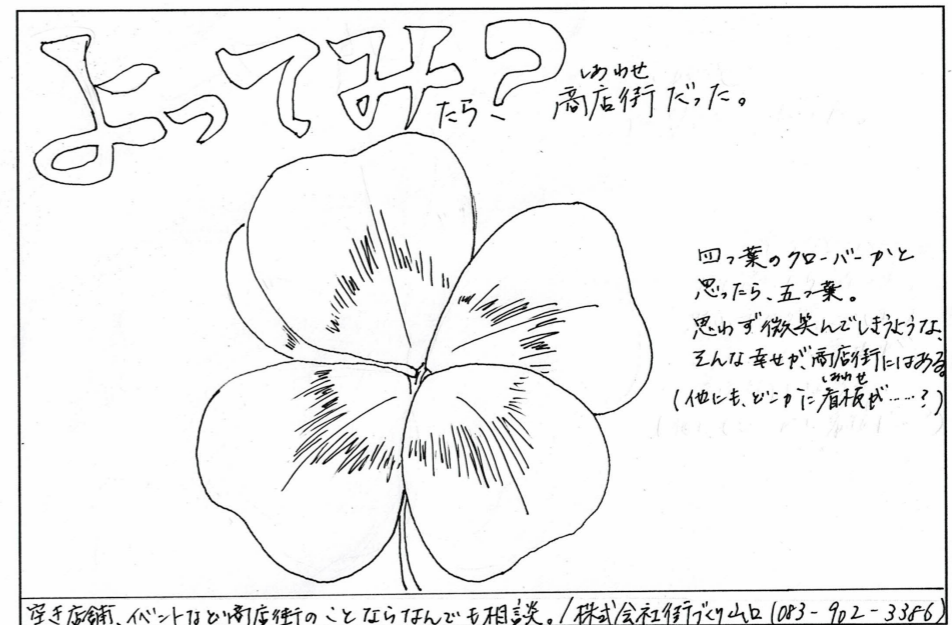 よってみたら、? 商店街だった。
しあわせ
四つ葉のクローバーかと
思ったら、五つ葉。
思わず微笑んでしまうような、
そんな幸せが、商店街にはある。
しあわせ
(他にも、どこかに看板が……?)
空き店舗、イベントなど商店街のことならなんでも相談。/株式会社街づくり山口(083-902-3386)